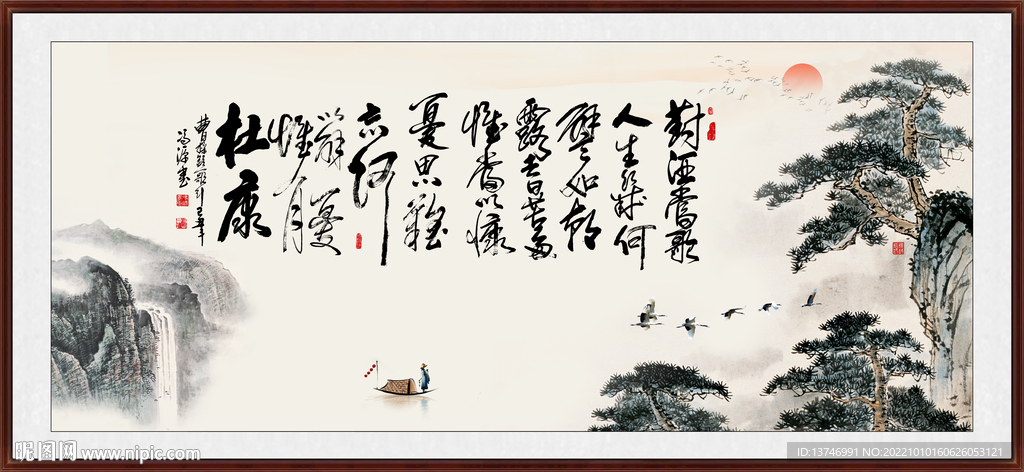 對酒當歌
人生幾何
譬如朝
露去日苦多
慨當以慷
憂思難
忘何
以解憂
惟有
杜康
曹操短歌行
昵图网 www.nipic.com
ID:13746991 NO:20221010160626053121